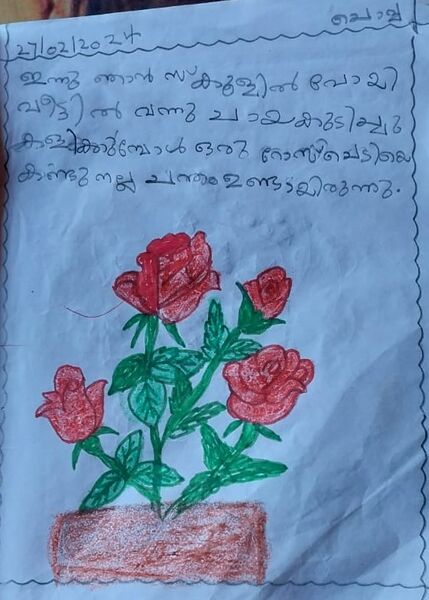 ചൊവ്വ
27/02/2024
ഇന്നു ഞാൻ സ്കൂളിൽ പോയി
വീട്ടിൽ വന്നു ചായകുടിച്ചു
കളിക്കുമ്പോൾ ഒരു റോസ്ചെടിയെ
കണ്ടു നല്ല ചന്തം ഉണ്ടായിരുന്നു.